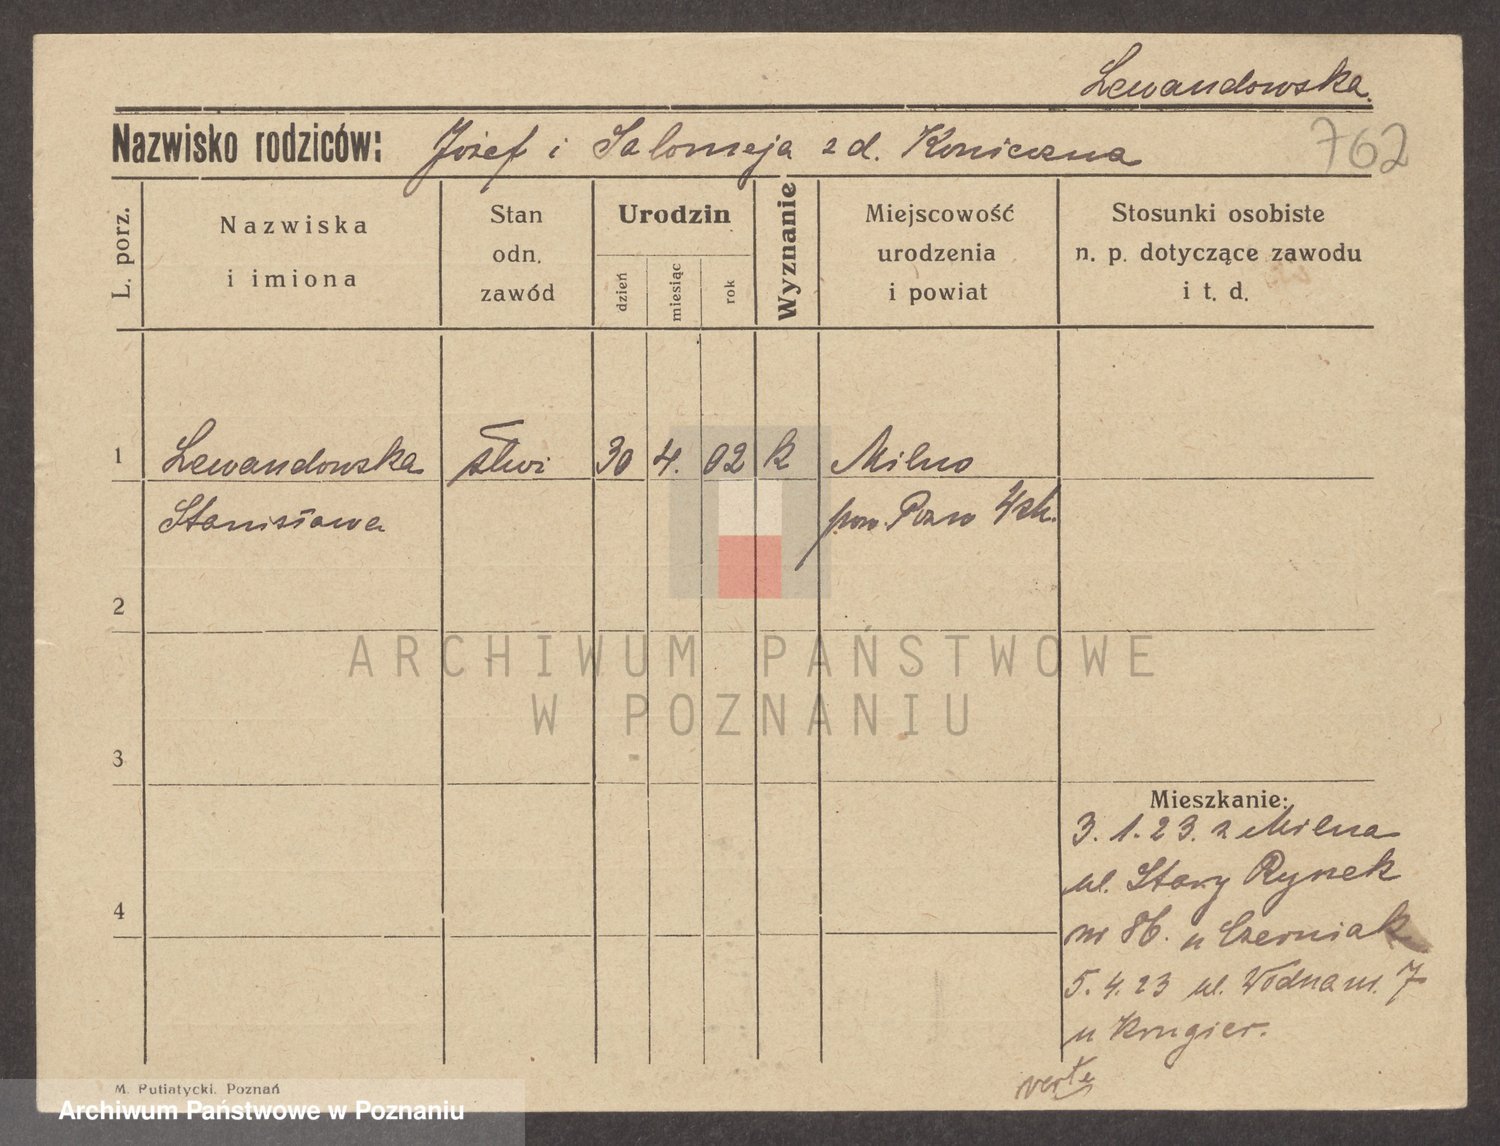 Lewandowska.
762
Nazwisko rodziców: Józef i Salomeja z d. Konieczna
L. porz.
Nazwiska
i imiona
Stan
odn.
zawód
Urodzin
dzień
miesiąc
rok
Wyznanie
Miejscowość
urodzenia
i powiat
Stosunki osobiste
n. p. dotyczące zawodu
i t. d.
1 Lewandowska 30 4. 02 k Milno
Stanisława pow. Pozn Wsch.
2
3
4
ARCHIWUM PAŃSTWOWE
W POZNANIU
Mieszkanie:
3. 1. 23. z Milna
ul. Stary Rynek
nr 86. u Czerniak
5. 4. 23 ul. Wodna nr. 7
u Krugier.
verte
M. Putiatycki. Poznań
Archiwum Państwowe w Poznaniu